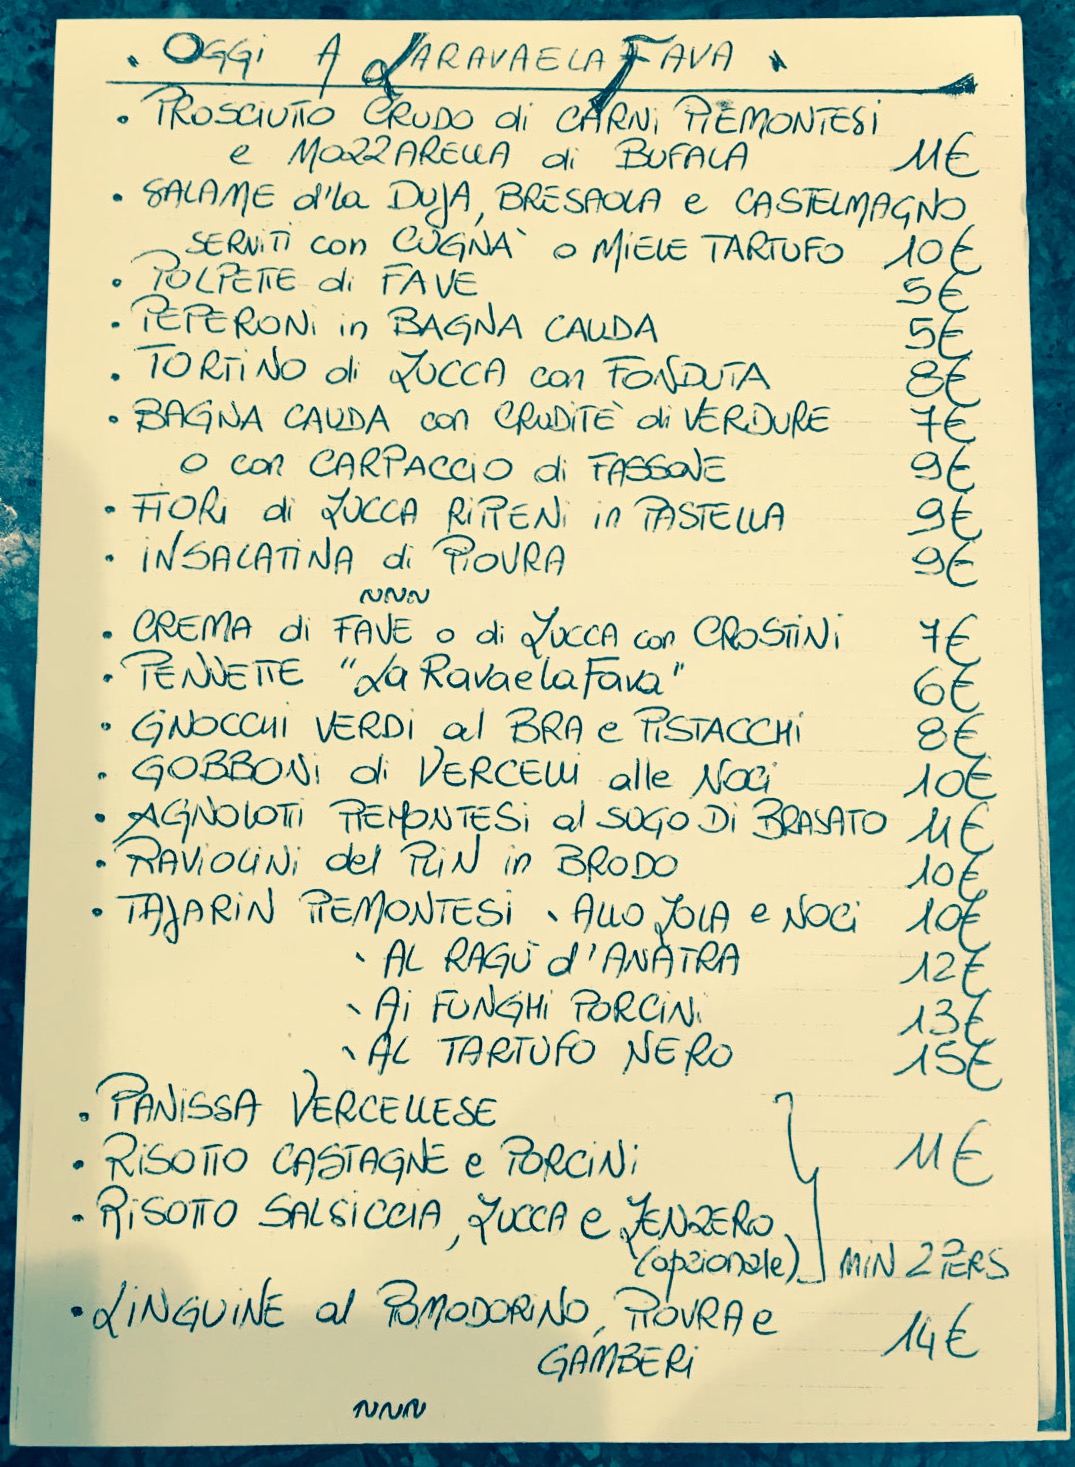 . OGGI A LARAVAELAFAVA
• PROSCIUTTO CRUDO di CARNI PIEMONTESI
e MOZZARELLA di BUFALA 11€
• SALAME d'la DUJA, BRESAOLA e CASTELMAGNO
SERVITI con COGNA' o MIELE TARTUFO 10€
• POLPETTE di FAVE 5€
• PEPERONI in BAGNA CAUDA 5€
• TORTINO di ZUCCA con FONDUTA 8€
• BAGNA CAUDA con CRUDITÈ di VERDURE 7€
o con CARPACCIO di FASSONE 9€
• FIORI di ZUCCA RIPIENI in PASTELLA 9€
• INSALATINA di PIOVRA 9€
~~~
• CREMA di FAVE o di ZUCCA con CROSTINI 7€
• PENNETTE "La RavaelaFava" 6€
• GNOCCHI VERDI al BRA e PISTACCHI 8€
• GOBBONI di VERCELLI alle NOCI 10€
• AGNOLOTTI PIEMONTESI al SUGO DI BRASATO 11€
• RAVIOLINI del PLIN in BRODO 10€
• TAJARIN PIEMONTESI ` ALLO ZOLA e NOCI 10€
` AL RAGÙ d'ANATRA 12€
` Ai FUNGHI PORCINI 13€
` AL TARTUFO NERO 15€
• PANISSA VERCELLESE
• RISOTTO CASTAGNE e PORCINI 11€
• RISOTTO SALSICCIA, ZUCCA e ZENZERO
(opzionale) MIN 2 PERS
• LINGUINE al POMODORINO, PIOVRA e
GAMBERI 14€
~~~